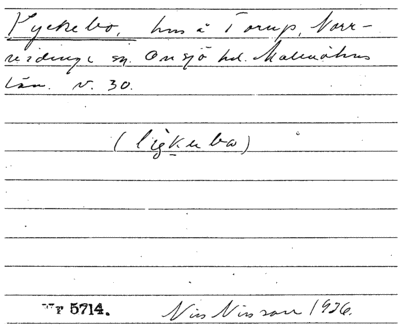 Lyckebo, hus å Torup, Norr-
vidinge sn. Onsjö hd. Malmöhus
län. v. 30.
(likebo)
Nr 5714. Nils Nilsson 1926.